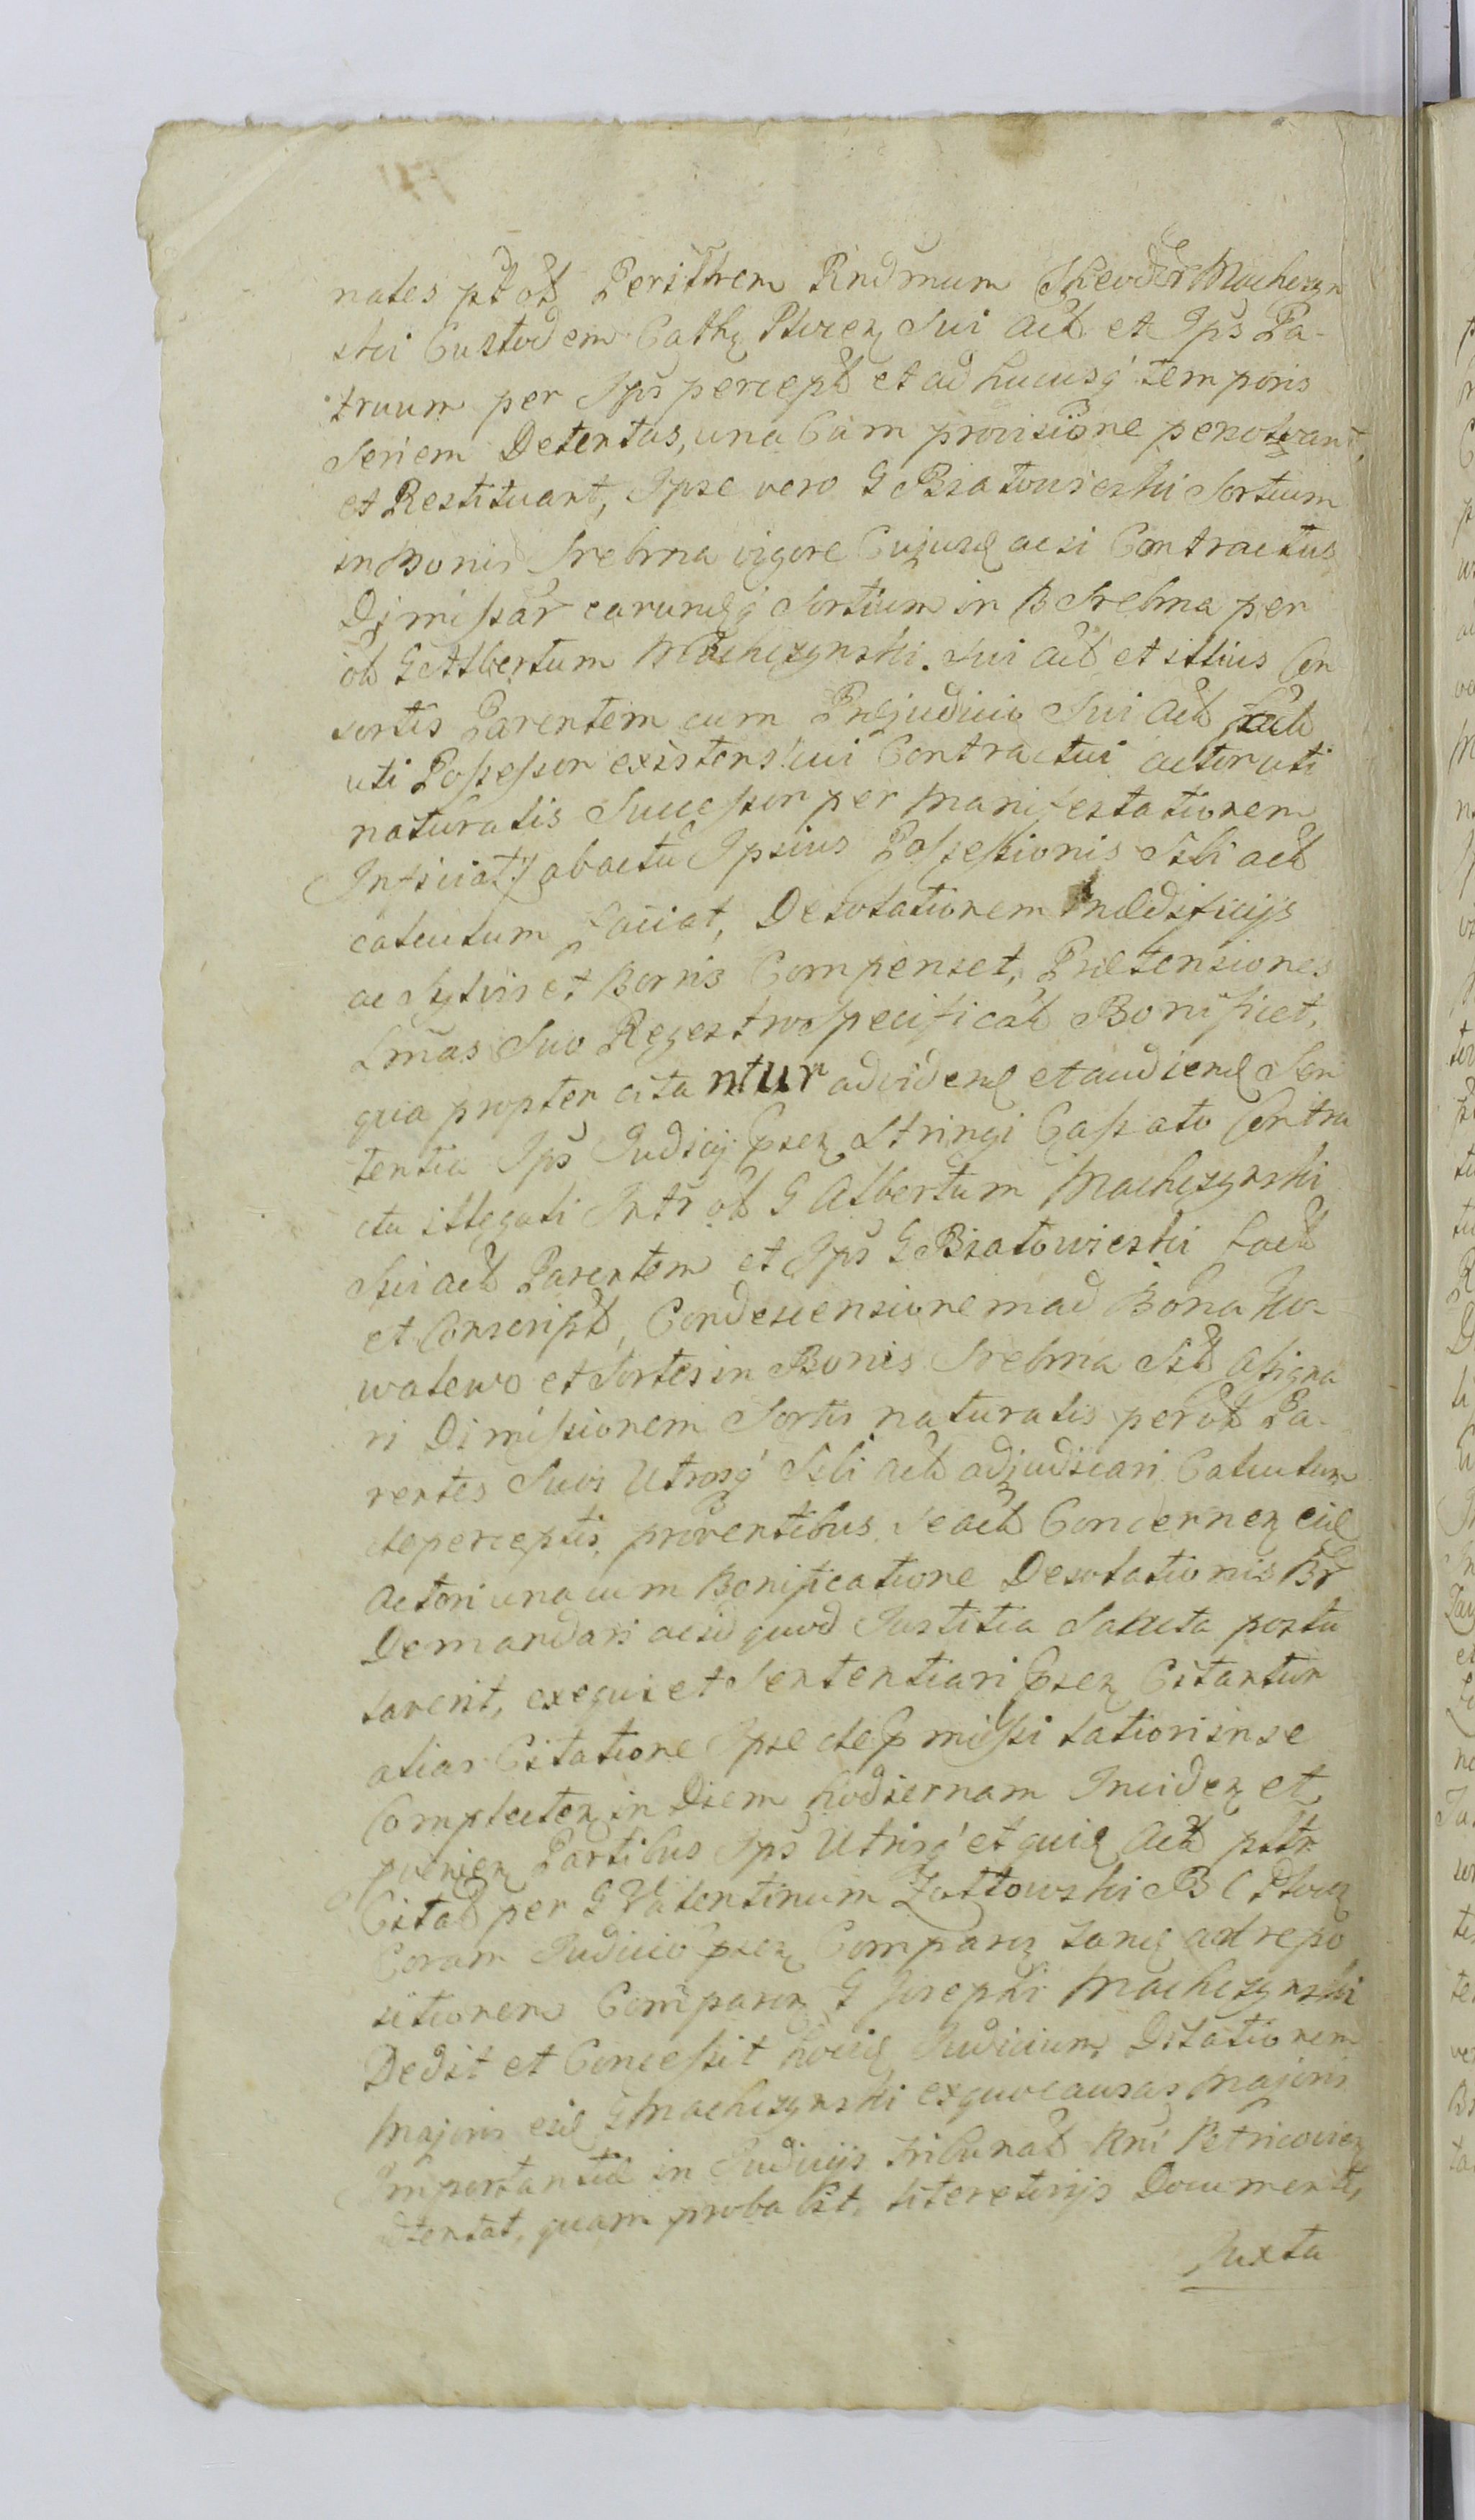 nates pt ob Perillrem Rndmum Theodor Machczyn
ski Custodem Cathz Plocen Sui Act et Ips Pa-
truum per Ips percept et adhucusq temporis
Seriem Detentas, una Cum provisione persolvant,
et Restituant, Ipse vero G Białowieski Sortium
in Bonis Srebrna vigore Cujusd acsi Contractus
Dimissar earundq Sortium in B Srebrna per
ob G Albertum Machczynski Sui Act et illius Con
sortis Parentem cum Præjudicio Sui Act fact
uti Possessor existens cui Contractui actor uti
naturalis Successor per Manifestationem
Insciat abactu Ipsius Possessionis Sibi act
calculum faciat, Desolationem in ædificijs
ac Sylvis et Bornis Compenset, Prætensiones
Lmas Suo Regestro Specificat Bonificet,
qua propter citantur ad videnд et audiend Sen
tentia Ips Judicij psen Stringi Cassato Contra
ctu illegali Intr ob G Albertum Machczynski
Sui act Parentem et Ips G Białowieski fact
et Conscript, Condescensionem ad Bona Ko-
walewo et Sortes in Bonis Srebrna Sibi Assigna
ri Dimissionem Sortis naturalis per ob Pa-
rentes Suos Utrosq Sibi Act adjudicari Calculum
de perceptis proventibus Se act Concernen eid
Actori una cum Bonificatione Desolationis Br
Demandari ac id quod Justitia Sancta postu
laverit, exequi et Sententiari psen Citantur
alias Citatione Ipse de p missi latiori in se
Complecten in Diem hodiernam Inciden et
pvenien Partibus Ips Utrisq et quid Act pttr
Citat per G Valentinum Zołtowski B C Płocz
Coram Judicio psen Comparen tand ad repo
sitionem Comparen G Josephi Machczynski
Dedit et Concessit hocce Judicium Dilationem
Majoris eid G Machczynski ex quo causas Majoris
Importantiæ in Judicijs Tribunal Rni Petricovien
Attentat, quam probabit literetorijs Document,
Juxta